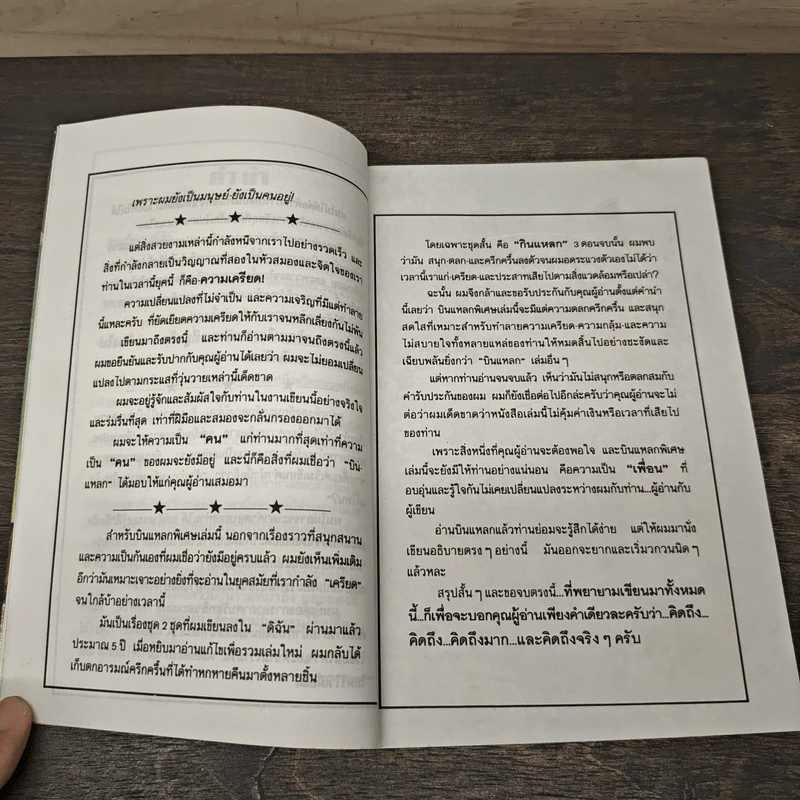 เพราะผมยังเป็นมนุษย์-ยังเป็นคนอยู่!
แต่สิ่งสวยงามเหล่านี้กำลังหนีจากเราไปอย่างรวดเร็ว และ
สิ่งที่กำลังกลายเป็นวิญญาณที่สองในหัวสมองและจิตใจของเรา
ท่านในเวลานี้ยุคนี้ ก็คือ-ความเครียด!
ความเปลี่ยนแปลงที่ไม่จำเป็น และความเจริญที่มีแต่ทำลาย
นี้แหละครับ ที่ยัดเยียดความเครียดให้กับเราจนหลีกเลี่ยงกันไม่พ้น
เขียนมาถึงตรงนี้ และท่านก็อ่านตามมาจนถึงตรงนี้แล้ว
ผมขอยืนยันและรับปากกับคุณผู้อ่านได้เลยว่า ผมจะไม่ยอมเปลี่ยน
แปลงไปตามกระแสที่วุ่นวายเหล่านี้เด็ดขาด
ผมจะอยู่รู้จักและสัมผัสใจกับท่านในงานเขียนนี้อย่างจริงใจ
และร่มรื่นที่สุด เท่าที่ฝีมือและสมองจะกลั่นกรองออกมาได้
ผมจะให้ความเป็น "คน" แก่ท่านมากที่สุดเท่าที่ความ
เป็น "คน" ของผมจะยังมีอยู่ และนี่ก็คือสิ่งที่ผมเชื่อว่า "บิน-
แหลก" ได้มอบให้แก่คุณผู้อ่านเสมอมา
สำหรับบินแหลกพิเศษเล่มนี้ นอกจากเรื่องราวที่สนุกสนาน
และความเป็นกันเองที่ผมเชื่อว่ายังมีอยู่ครบแล้ว ผมยังเห็นเพิ่มเติม
อีกว่ามันเหมาะเจาะอย่างยิ่งที่จะอ่านในยุคสมัยที่เรากำลัง "เครียด"
จนใกล้บ้าอย่างเวลานี้
มันเป็นเรื่องชุด 2 ชุดที่ผมเขียนลงใน "ดิฉัน" ผ่านมาแล้ว
ประมาณ 5 ปี เมื่อหยิบมาอ่านแก้ไขเพื่อรวมเล่มใหม่ ผมกลับได้
เก็บตกอารมณ์ครึกครื้นที่ได้ทำหกหายคืนมาตั้งหลายชิ้น
โดยเฉพาะชุดสั้น คือ "กินแหลก" 3 ตอนจบนั้น ผมพบ
ว่ามัน สนุก-ตลก-และครึกครื้นลงตัวจนผมอดระแวงตัวเองไม่ได้ว่า
เวลานี้เราแก่-เครียด-และประสาทเสียไปตามสิ่งแวดล้อมหรือเปล่า?
ฉะนั้น ผมจึงกล้าและขอรับประกันกับคุณผู้อ่านตั้งแต่คำนำ
นี้เลยว่า บินแหลกพิเศษเล่มนี้จะมีแต่ความตลกครึกครื้น และสนุก
สดใสที่เหมาะสำหรับทำลายความเครียด-ความกลุ้ม-และความ
ไม่สบายใจทั้งหลายแหล่ของท่านให้หมดสิ้นไปอย่างชะงัดและ
เฉียบพลันยิ่งกว่า "บินแหลก" เล่มอื่น ๆ
แต่หากท่านอ่านจนจบแล้ว เห็นว่ามันไม่สนุกหรือตลกสมกับ
คำรับประกันของผม ผมก็ยังเชื่อต่อไปอีกล่ะครับว่าคุณผู้อ่านจะไม่
ต่อว่าผมเด็ดขาดว่าหนังสือเล่มนี้ไม่คุ้มค่าเงินหรือเวลาที่เสียไป
ของท่าน
เพราะสิ่งหนึ่งที่คุณผู้อ่านจะต้องพอใจ และบินแหลกพิเศษ
เล่มนี้จะยังมีให้ท่านอย่างแน่นอน คือความเป็น "เพื่อน" ที่
อบอุ่นและรู้ใจกันไม่เคยเปลี่ยนแปลงระหว่างผมกับท่าน...ผู้อ่านกับ
ผู้เขียน
อ่านบินแหลกแล้วท่านย่อมจะรู้สึกได้ง่าย แต่ให้ผมมานั่ง
เขียนอธิบายตรง ๆ อย่างนี้ มันออกจะยากและเริ่มวกวนนิด ๆ
แล้วหละ
สรุปสั้น ๆ และขอจบตรงนี้...ที่พยายามเขียนมาทั้งหมด
นี้...ก็เพื่อจะบอกคุณผู้อ่านเพียงคำเดียวละครับว่า...คิดถึง...
คิดถึง...คิดถึงมาก...และคิดถึงจริง ๆ ครับ